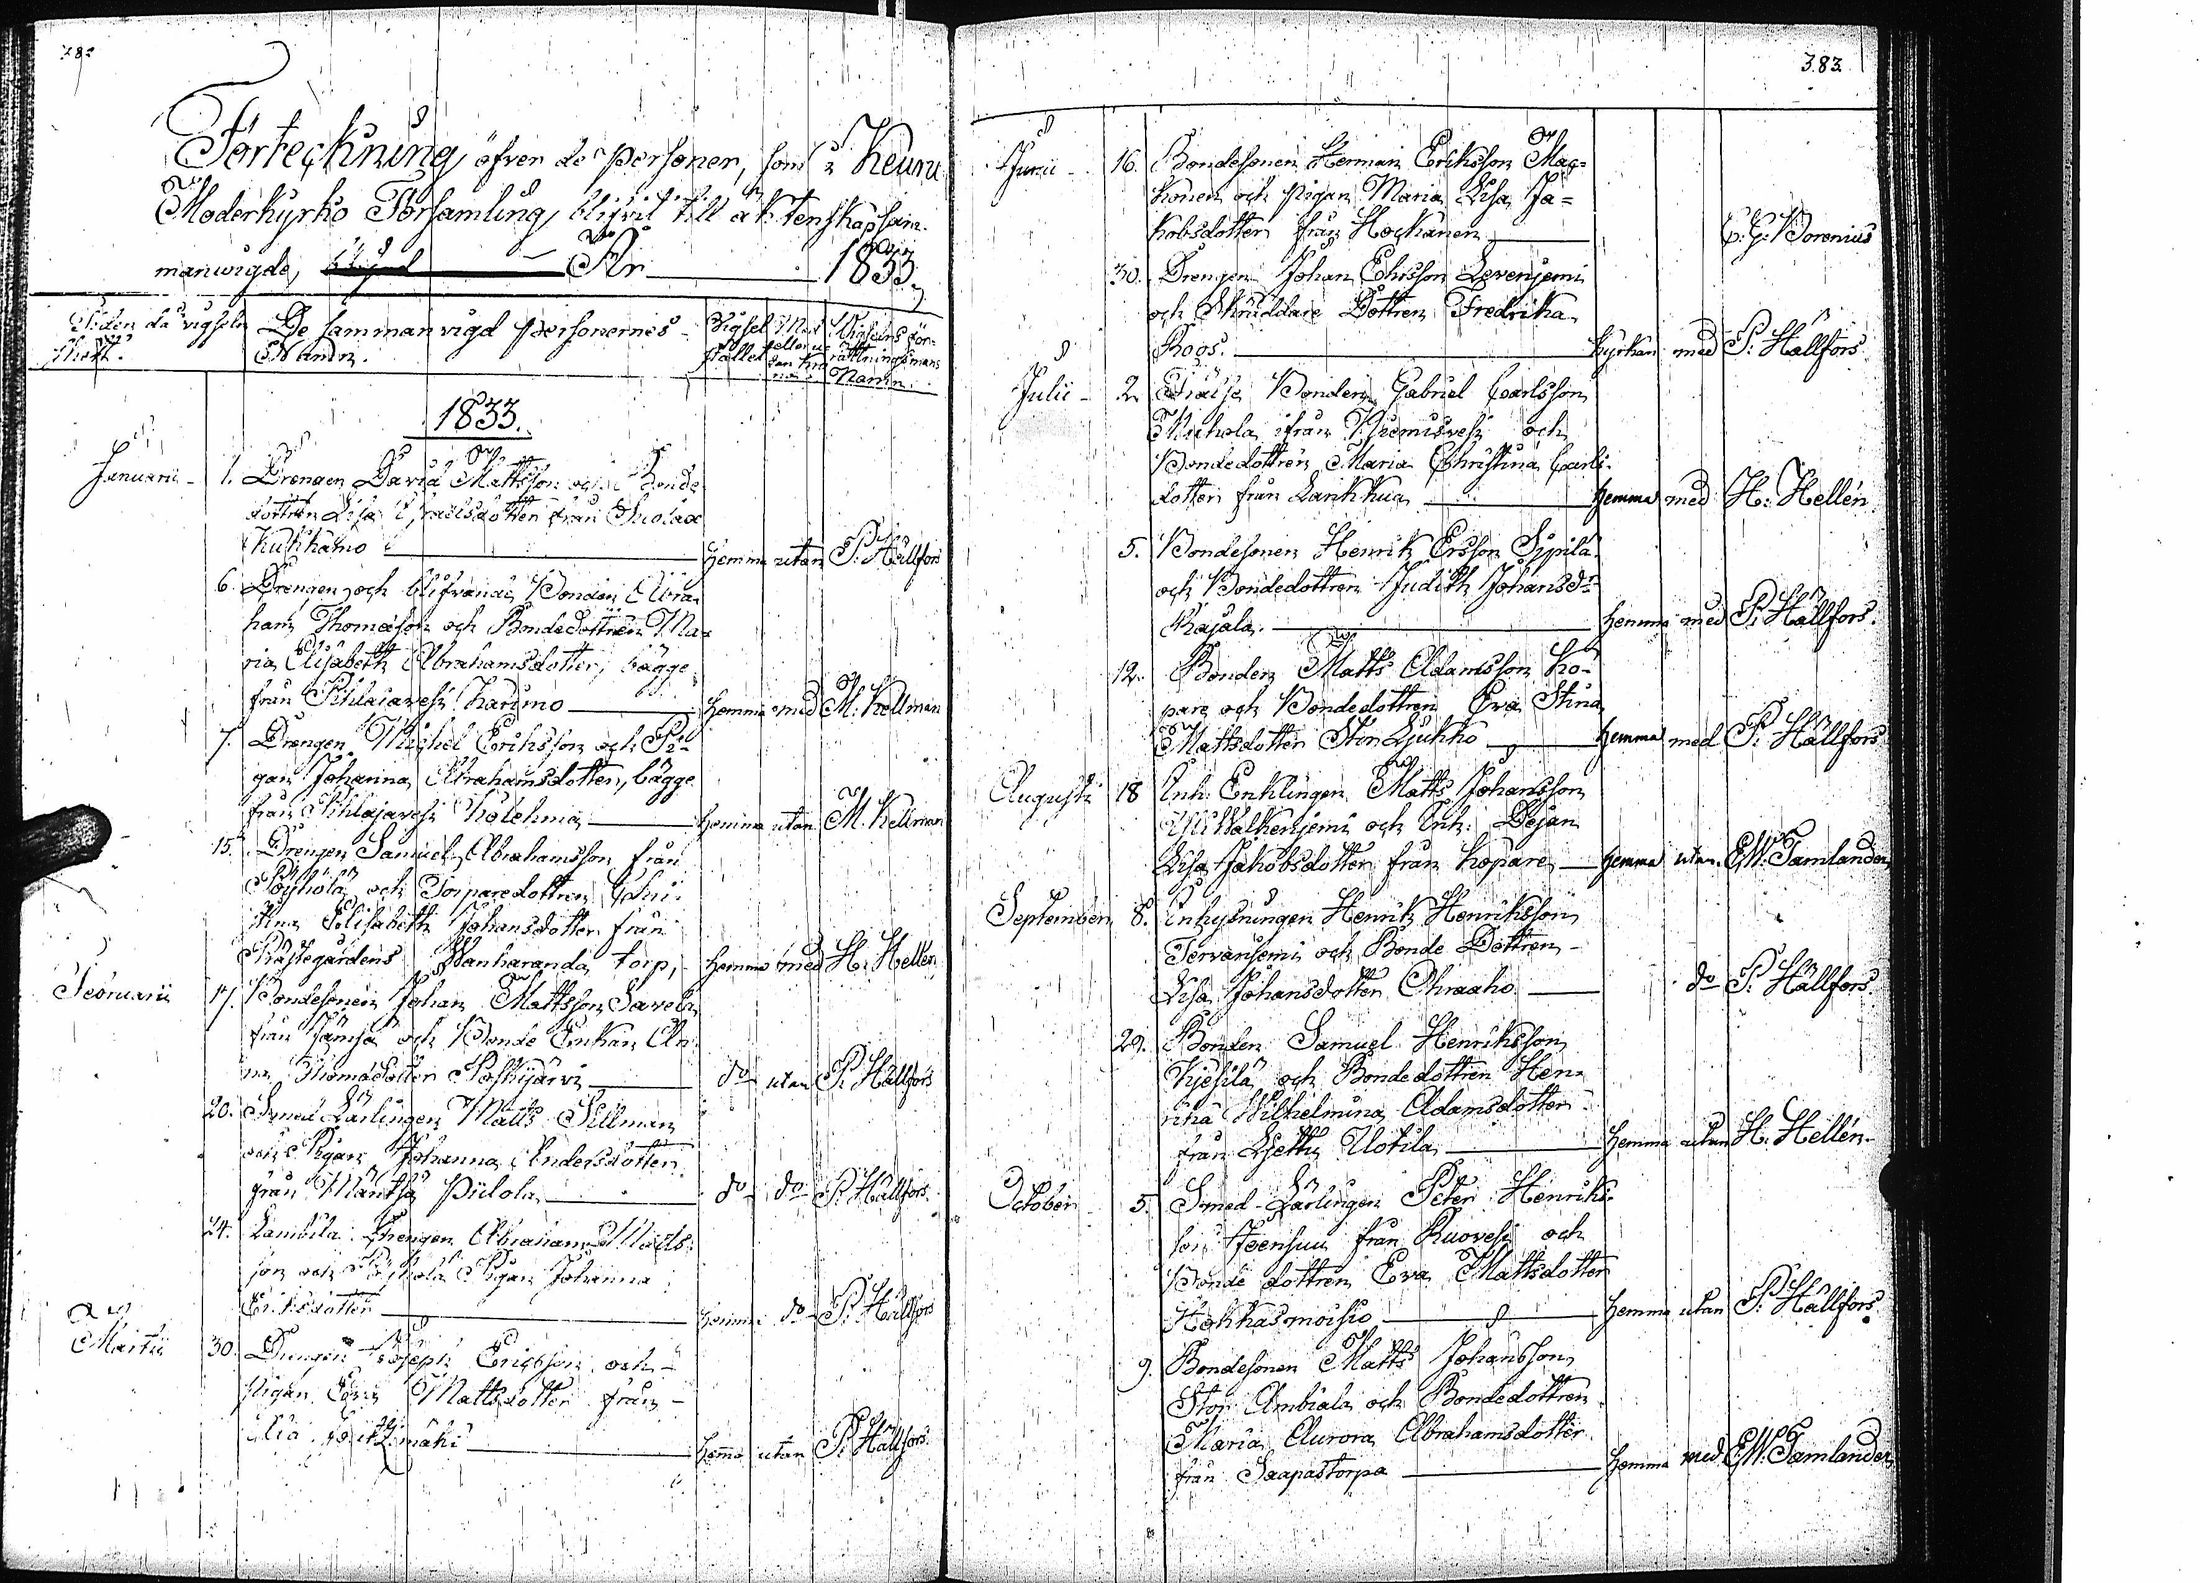 382
Förteckning öfver de Personer, som i Keuru
Moderkyrko Församling blifvit till äktenskap sam-
manvigde, År 1833.
Tiden då vigseln
skett.
De samman vigd personernes
Namn.
Vigsel
stället
Med
eller u-
tan kro
na
Vigselns för-
rättningsmans
Namn.
1833.
Januarii 1. Drengen David Mattsson och Bonde
dottren Lisa Israelsdotter från
Kukkamo Hemma utan P. Hällfors
6. Drengen och blifvande Bonden Abra
ham Thomasson och Bondedottren Ma
ria Elisabeth Abrahamsdotter, bägge
från Pihlajavesi Karimo Hemma med M. Kellman
7. Drengen Michel Eriksson och Pi-
gan Johanna Abrahamsdotter, bägge
från Pihlajavesi Kolehma Hemma utan M. Kellman
15. Drengen Samuel Abrahamsson från
Pöyhölä och Torparedottren Chri-
stina Elisabeth Johansdotter från
Prästegårdens Wanharanda torp, Hemma med H. Hellén
Februarii 17. Bondesonen Johan Mattsson Savela
från Jämsä och Bonde Enkan An
na Thomasdotter Poshjärvi do utan P. Hällfors
20. Smed Lärlingen Matts Sillman
och Pigan Johanna Andersdotter
från Mäntsä Piilola do do P. Hällfors
24. Lambila Drengen Abraham Matts-
son och Pigan Johanna
Eriksdotter Hemma do P. Hällfors
Martii 30. Drengen Joseph Ericsson och
Pigan Mattsdotter från
Hemma utan P. Hällfors
383
Junii 16. Bondesonen Herman Eriksson Mac-
konen och pigan Maria Lisa Ja-
kobsdotter från Hockanen C. G. Borenius
30. Drengen Johan Ehrsson Levenjemi
och Skräddare Dottren Fredrika
Roos. Kyrkan med P. Hällfors
Julii 2. Bonden Gabriel Carlsson
från och
Bondedottren Maria Christina Carls-
dotter från Larikkua Hemma med H. Hellén
5. Bondesonen Henrik Ersson Sipilä
och Bondedottren Judith Johansdr
Kajala. Hemma med P. Hällfors.
12. Bonden Matts Adamsson Ho-
pare och Bondedottren Eva Stina
Mattsdotter Stor Ljukko Hemma med P. Hällfors
Augusti 18 Inh. Enklingen Matts Johansson
Walkenjemi och Inh. Pejan
Lisa Jakobsdotter från Hopare Hemma utan E.W. Tamlander
September 8. Inhysningen Henrik Henriksson
Tervanjemi och Bonde Dottren
Lisa Johansdotter Ohraaho do P. Hällfors
29. Bonden Samuel Henriksson
Kjesilä och Bondedottren Hen-
rika Wilhelmina Adamsdotter
från Ljettu Uotila Hemma utan H. Hellén
October 5. Smed-Lärlingen Peter Henriks-
son Joensuu från Ruovesi och
Bonde dottren Eva Mattsdotter
Hokkasmoisio Hemma utan P. Hällfors
9. Bondesonen Matts Johansson
Stor Ambiala och Bondedottren
Maria Aurora Abrahamsdotter
från Saapastorpa Hemma med E.W. Tamlander